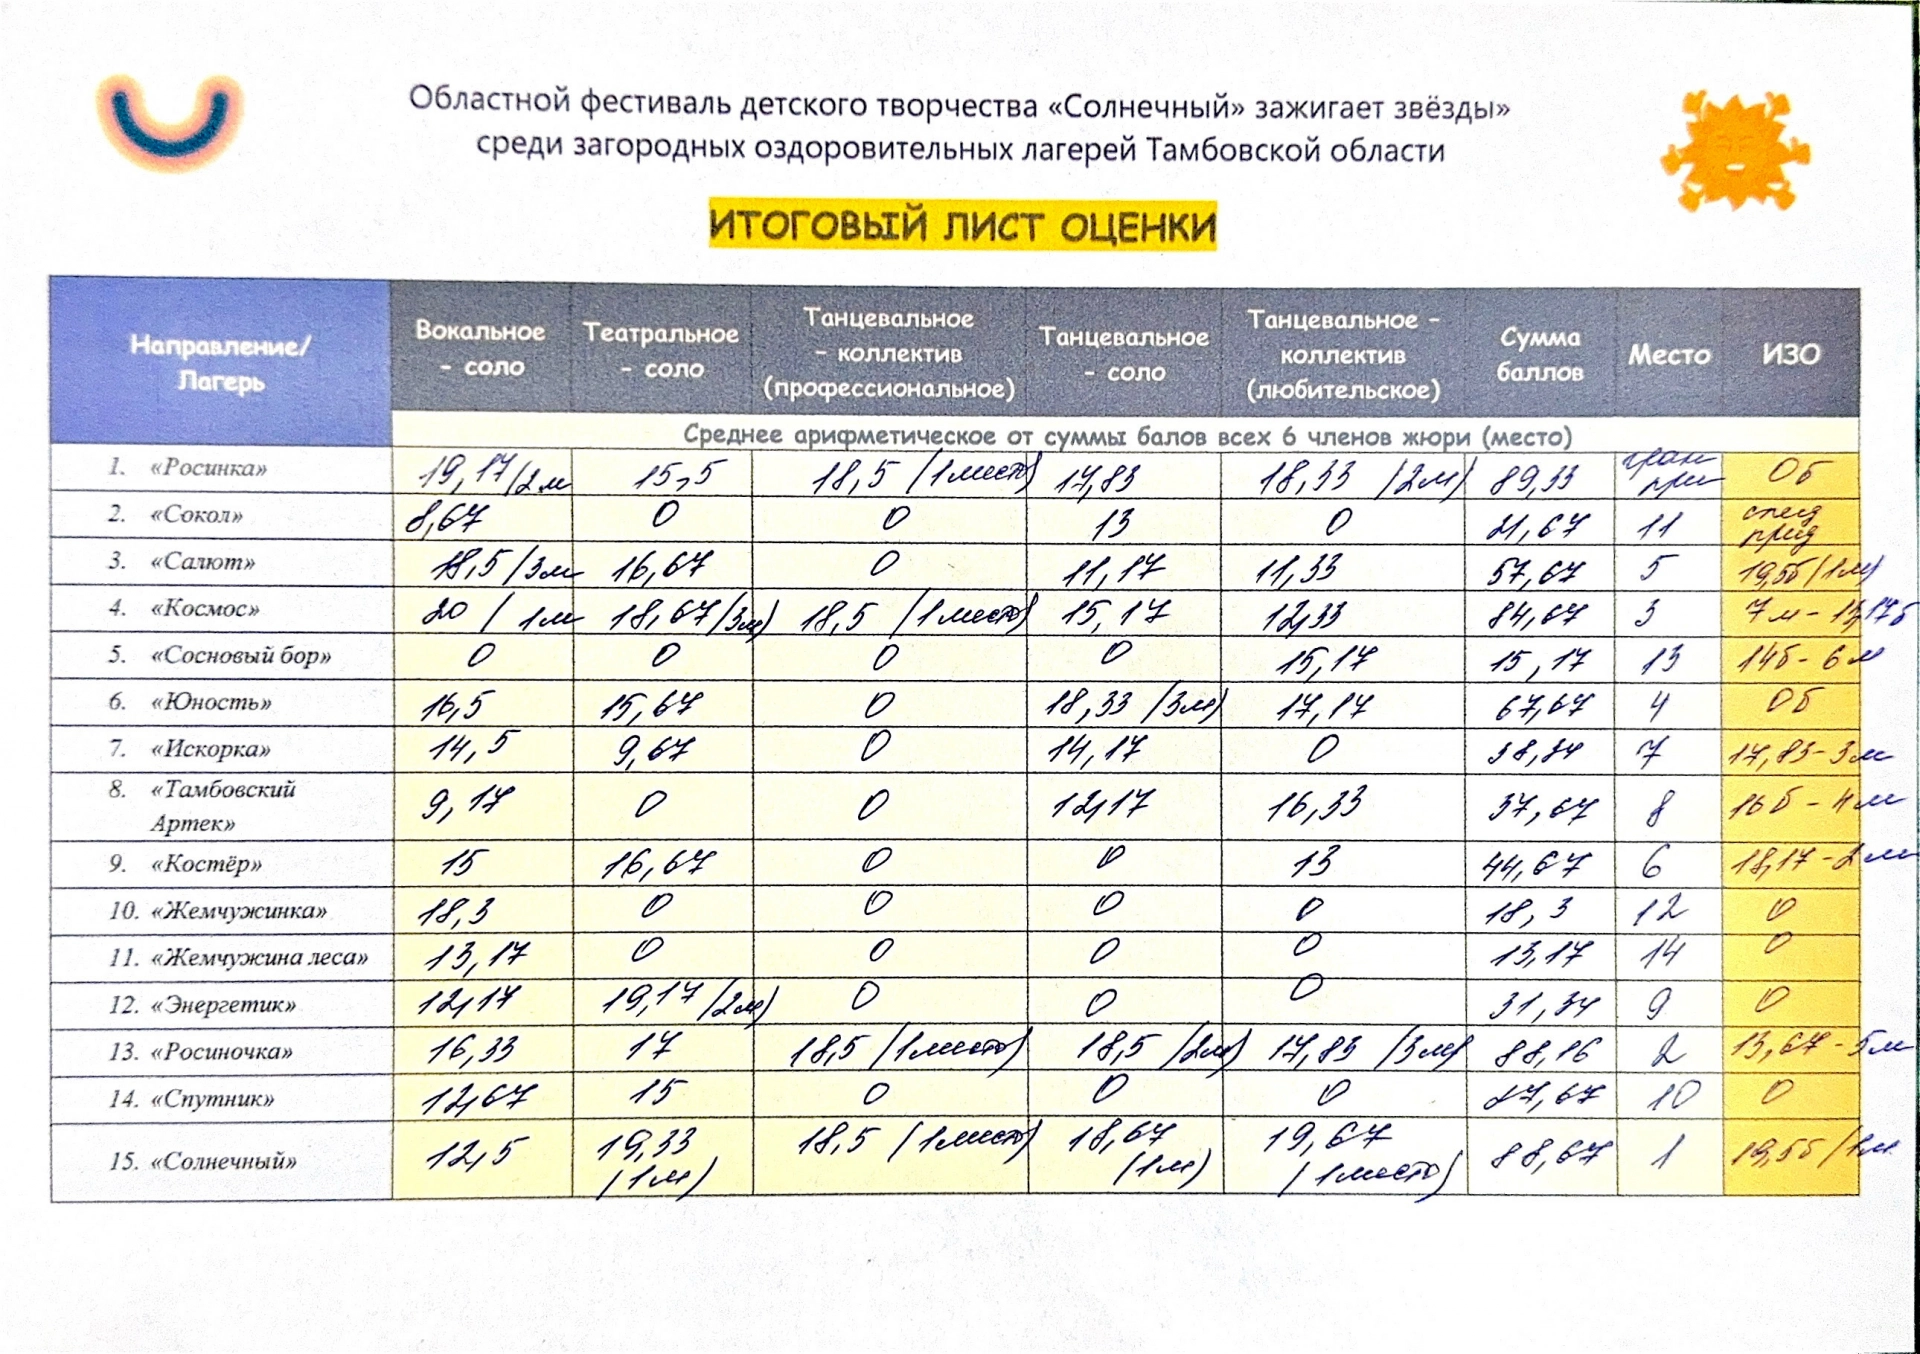 Областной фестиваль детского творчества «Солнечный» зажигает звёзды»
среди загородных оздоровительных лагерей Тамбовской области
ИТОГОВЫЙ ЛИСТ ОЦЕНКИ
Направление/ Лагерь Вокальное - соло Театральное - соло Танцевальное - коллектив (профессиональное) Танцевальное - соло Танцевальное - коллектив (любительское) Сумма баллов Место ИЗО
Среднее арифметическое от суммы балов всех 6 членов жюри (место)
1. «Росинка» 19,17/2м 15,5 18,5 (1место) 17,83 18,33 (2м) 89,33 гран при 0б
2. «Сокол» 8,67 0 0 13 0 21,67 11 спец приз
3. «Салют» 18,5/3м 16,67 0 11,17 11,33 57,67 5 19,5б/1м)
4. «Космос» 20 / 1м 18,67/3м) 18,5 (1место) 15,17 12,33 84,67 3 7м - 13,17б
5. «Сосновый бор» 0 0 0 0 15,17 15,17 13 14б - 6м
6. «Юность» 16,5 15,67 0 18,33 (3м) 17,17 67,67 4 0б
7. «Искорка» 14,5 9,67 0 14,17 0 38,34 7 17,83-3м
8. «Тамбовский Артек» 9,17 0 0 12,17 16,33 37,67 8 16б - 4м
9. «Костёр» 15 16,67 0 0 13 44,67 6 18,17-2м
10. «Жемчужинка» 18,3 0 0 0 0 18,3 12 0
11. «Жемчужина леса» 13,17 0 0 0 0 13,17 14 0
12. «Энергетик» 12,17 19,17/2м) 0 0 0 31,34 9 0
13. «Росиночка» 16,33 17 18,5 (1место) 18,5 (2м) 17,83 (3м) 88,16 2 13,67-5м
14. «Спутник» 12,67 15 0 0 0 27,67 10 0
15. «Солнечный» 12,5 19,33 (1м) 18,5 (1место) 18,67 (1м) 19,67 (1место) 88,67 1 19,5б/1м